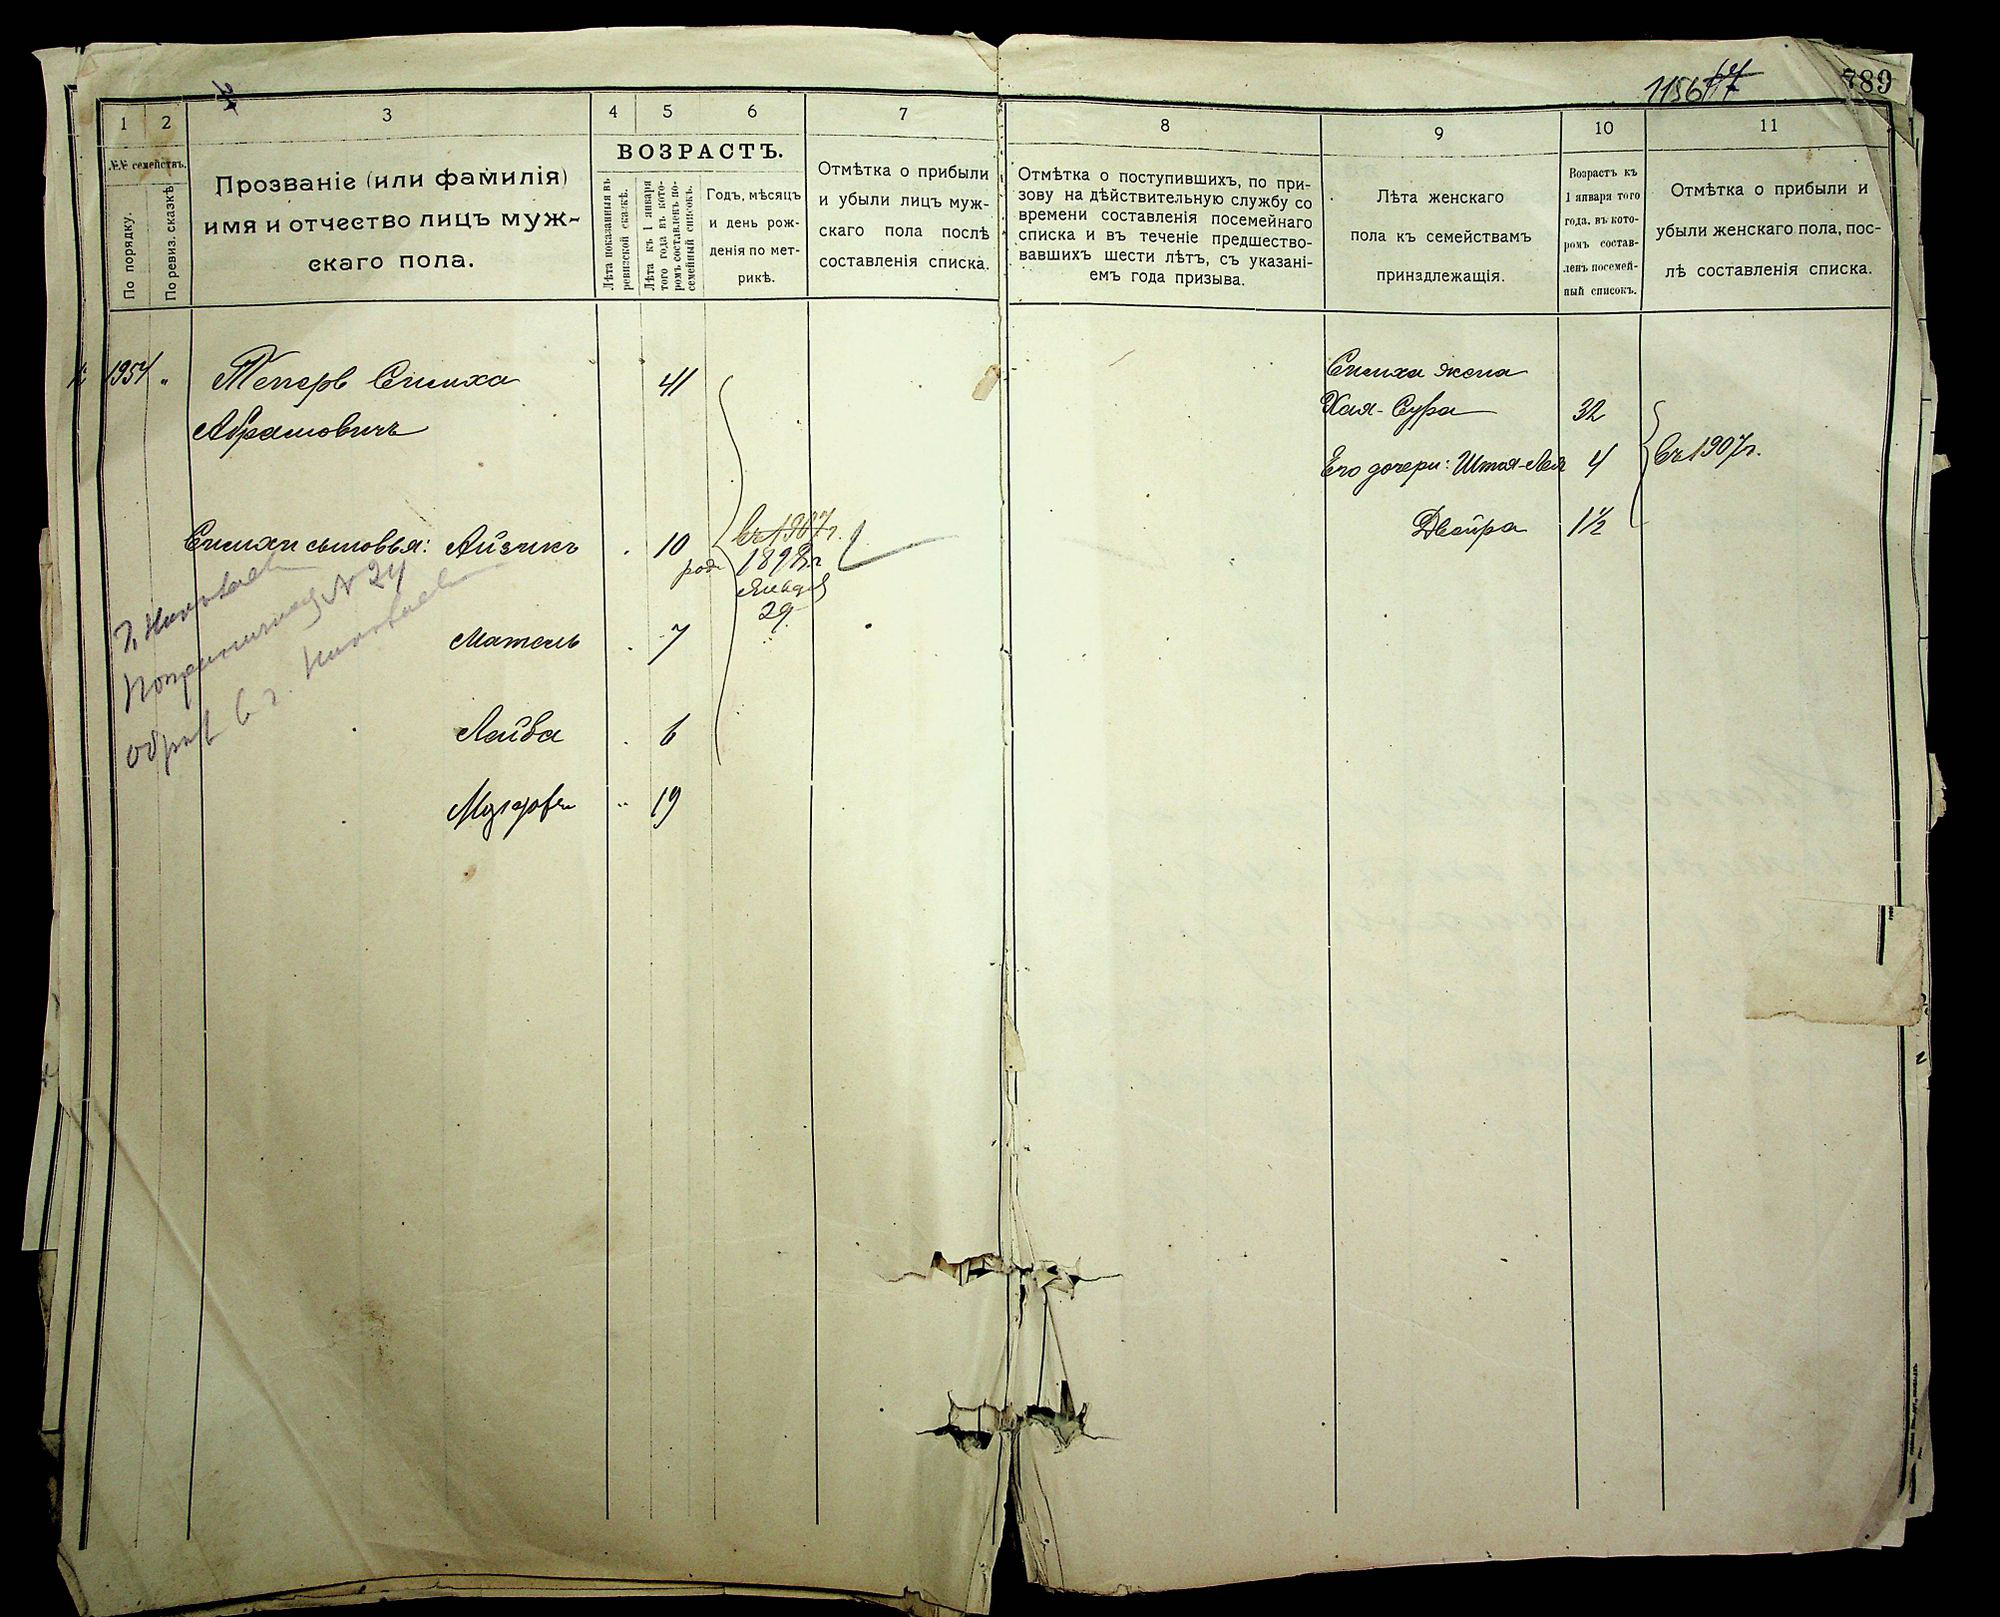 789
1 2 3 4 5 6 7 8 9 10 11
№№ семействъ.
По порядку.
По ревиз. сказкѣ
Прозваніе (или фамилія)
имя и отчество лицъ муж-
скаго пола.
ВОЗРАСТЪ.
Лѣта показанныя въ
ревизской сказкѣ.
Лѣта къ 1 января
того года въ кото-
ромъ составленъ по-
семейный списокъ.
Годъ, мѣсяцъ
и день рож-
денія по мет-
рикѣ.
Отмѣтка о прибыли
и убыли лицъ муж-
скаго пола послѣ
составленія списка.
Отмѣтка о поступившихъ, по при-
зову на дѣйствительную службу со
времени составленія посемейнаго
списка и въ теченіе предшество-
вавшихъ шести лѣтъ, съ указані-
емъ года призыва.
Лѣта женскаго
пола къ семействамъ
принадлежащія.
Возрастъ къ
1 января того
года, въ кото-
ромъ состав-
ленъ посемей-
ный списокъ.
Отмѣтка о прибыли и
убыли женскаго пола, пос-
лѣ составленія списка.
1954 „ Теперъ Симха 41
Абрамовичъ
Симхи сыновья: Айзикъ 10
род. 1898 г
Января
29
Мательь 7
Лейба 6
19
Симхи жена
Хая-Сура 32
Его дочери: 4
Двойра 1½
въ 1907 г.
въ 1907 г.